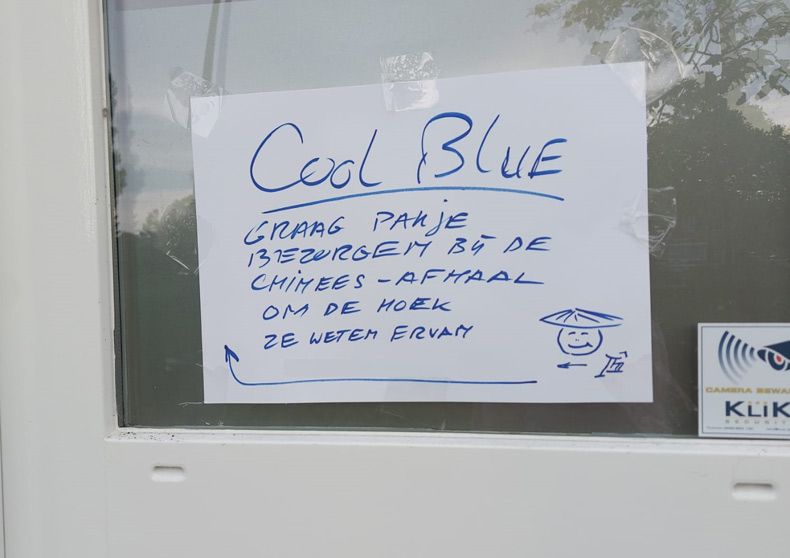 Cool Blue
GRAAG PAKJE
BEZORGEN BIJ DE
CHINEES - AFHAAL
OM DE HOEK
ZE WETEN ERVAN
CAMERA BEWA
KLIK
SECURIT